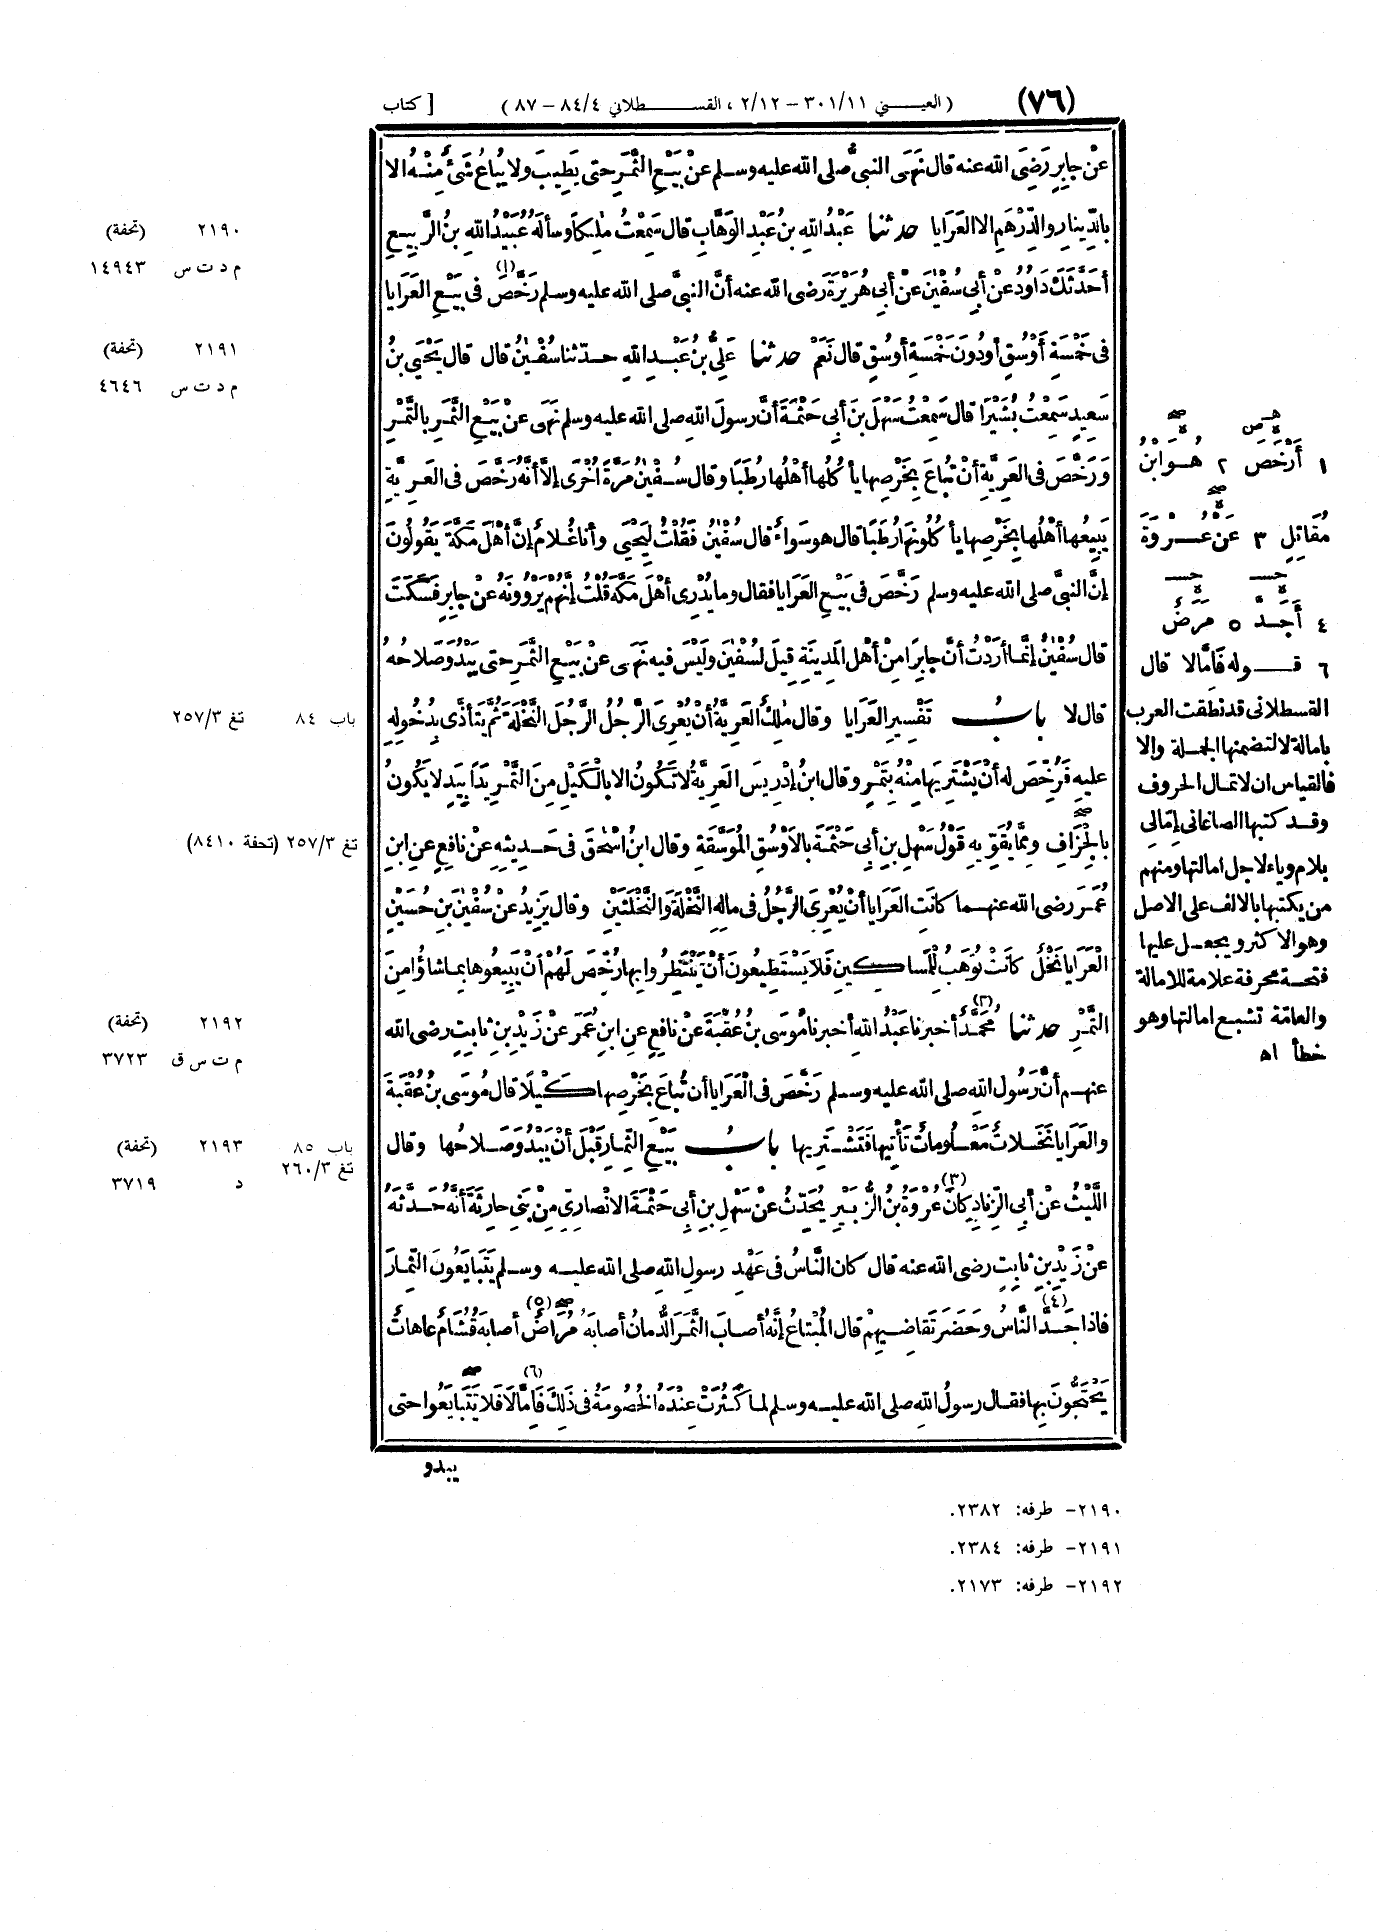 (٧٦) ( العيني ٣٠١/١١ – ٢/١٢ ، القسطلاني ٨٤/٤ – ٨٧ ) [ كتاب
عَنْ جابِرٍ رَضِىَ الله عنه قال نَهَى النبىُّ صلى الله عليه وسلم عنْ بَيْعِ الثَّمَرِ حتى يَطِيبَ ولا يُباعُ شَىْءٌ مِنْهُ الا
بالدِّينارِ والدِّرْهَمِ الا العَرَايا حدثنا عَبْدُ اللهِ بنُ عَبْدِ الوَهَّابِ قال سَمِعْتُ مٰلِكاً وسألَهُ عُبَيْدُ اللهِ بنُ الرَّبِيعِ
أَحَدَّثَكَ دَاوُدُ عنْ أبى سُفْيٰنَ عنْ أبى هُرَيْرَةَ رضى الله عنه أنَّ النبىَّ صلى الله عليه وسلم رَخَّصَ (١) فى بَيْعِ العَرَايا
فى خَمْسَةِ أَوْسُقٍ أودُونَ خَمْسَةِ أوسُقٍ قال نَعَمْ حدثنا عَلِىُّ بنُ عَبْدِ اللهِ حدّثنا سُفْيٰنُ قال قال يَحْيَى بنُ
سَعِيدٍ سَمِعْتُ بُشَيْرًا قال سَمِعْتُ سَهْلَ بنَ أبى حَثْمَةَ أنَّ رسولَ اللهِ صلى الله عليه وسلم نَهَى عنْ بَيْعِ الثَّمَرِ بالتَّمْرِ
وَرَخَّصَ فى العَرِيَّةِ أنْ تُباعَ بِخَرْصِها يأكُلُها أهْلُها رُطَبًا وقال سُفْيٰنُ مَرَّةً أُخْرَى إلاَّ أنَّهُ رَخَّصَ فى العَرِيَّةِ
يَبِيعُها أهْلُها بِخَرْصِها يأكُلُونَها رُطَبًا قال هو سَواءٌ قال سُفْيٰنُ فَقُلْتُ لِيَحْيَى وأنا غُلامٌ إنَّ أهْلَ مَكَّةَ يَقُولُونَ
إنَّ النبىَّ صلى الله عليه وسلم رَخَّصَ فى بَيْعِ العَرَايا فقال وما يُدْرِى أهْلَ مَكَّةَ قُلْتُ إنَّهُمْ يَرْوُونَهُ عنْ جابِرٍ فَسَكَتَ
قال سُفْيٰنُ إنَّما أرَدْتُ أنَّ جابِرًا مِنْ أهْلِ المَدِينَةِ قِيلَ لِسُفْيٰنَ ولَيْسَ فيه نَهَى عنْ بَيْعِ الثَّمَرِ حتى يَبْدُوَ صَلاحُهُ
قال لا بابُ تَفْسِيرِ العَرَايا وقال مٰلِكٌ العَرِيَّةُ أنْ يُعْرِىَ الرَّجُلُ الرَّجُلَ النَّخْلَةَ ثُمَّ يَتَأذَّى بِدُخُولِهِ
عليه فَرُخِّصَ له أنْ يَشْتَرِيَها مِنْهُ بِتَمْرٍ وقال ابنُ إدْرِيسَ العَرِيَّةُ لا تَكُونُ الا بالكَيْلِ مِنَ التَّمْرِ يَدًا بِيَدٍ لا يَكُونُ
بالجِزَافِ ومِمَّا يُقَوِّيهِ قَوْلُ سَهْلِ بنِ أبى حَثْمَةَ بالأوْسُقِ المُوَسَّقَةِ وقال ابنُ اسْحٰقَ فى حَدِيثِهِ عنْ نافِعٍ عنِ ابنِ
عُمَرَ رضى الله عنهما كانَتِ العَرَايا أنْ يُعْرِىَ الرَّجُلُ فى مالِهِ النَّخْلَةَ والنَّخْلَتَيْنِ وقال يَزِيدُ عنْ سُفْيٰنَ بنِ حُسَيْنٍ
الْعَرَايا نَخْلٌ كانَتْ تُوهَبُ لِلْمَساكِينِ فَلا يَسْتَطِيعُونَ أنْ يَنْتَظِرُوا بِها رُخِّصَ لَهُمْ أنْ يَبِيعُوها بِما شاؤُا مِنَ
التَّمْرِ حدثنا مُحَمَّدٌ (٢) أخبرنا عَبْدُ اللهِ أخبرنا مُوسَى بنُ عُقْبَةَ عنْ نافِعٍ عنِ ابنِ عُمَرَ عنْ زَيْدِ بنِ ثابِتٍ رضى الله
عنهم أنَّ رَسُولَ اللهِ صلى الله عليه وسلم رَخَّصَ فى الْعَرَايا أن تُباعَ بِخَرْصِها كَيْلًا قال مُوسَى بنُ عُقْبَةَ
والعَرَايا نَخَلاتٌ مَعْلُوماتٌ تَأْتِيها فَتَشْتَرِيها بابُ بَيْعِ الثِّمارِ قَبْلَ أنْ يَبْدُوَ صَلاحُها وقال
اللَّيْثُ عنْ أبى الزِّنادِ كانَ (٣) عُرْوَةُ بنُ الزُّبَيْرِ يُحَدِّثُ عنْ سَهْلِ بنِ أبى حَثْمَةَ الانْصارِىِّ مِنْ بَنِى حارِثَةَ أنَّهُ حَدَّثَهُ
عنْ زَيْدِ بنِ ثابِتٍ رضى الله عنه قال كان النَّاسُ فى عَهْدِ رسولِ اللهِ صلى الله عليه وسلم يَتَبايَعُونَ الثِّمارَ
فاذا جَدَّ (٤) النَّاسُ وحَضَرَ تَقاضِيهِمْ قال المُبْتاعُ إنَّهُ أصابَ الثَّمَرَ الدُّمانُ أصابَهُ مُرَاضٌ (٥) صح أصابَهُ قُشامٌ عاهاتٌ
يَحْتَجُّونَ بِها فقال رسولُ اللهِ صلى الله عليه وسلم لما كَثُرَتْ عِنْدَهُ الخُصُومَةُ فى ذٰلِكَ (٦) فَإِمَّالَا فَلا تَتَبايَعُوا صح حتى
يبدو
١ أَرْخَصَ ٢ هُوَ ابْنُ
مُقَاتِلٍ ٣ عَنْ عُرْوَةَ
٤ أَجَدَّ ٥ مَرَضٌ
٦ قوله فَإِمَّالَا قال
القسطلانى قد نطقت العرب
بامالة لا لتضمنها الجملة والا
فالقياس ان لا تمال الحروف
وقد كتبها الصاغانى إمّالى
بلام وياء لاجل امالتها ومنهم
من يكتبها بالالف على الاصل
وهو الاكثر ويجعل عليها
فتحة محرفة علامة للامالة
والعامّة تشبع امالتها وهو
خطأ اه
٢١٩٠ (تحفة)
م د ت س ١٤٩٤٣
٢١٩١ (تحفة)
م د ت س ٤٦٤٦
باب ٨٤ تغ ٢٥٧/٣
تغ ٢٥٧/٣ (تحفة ٨٤١٠)
٢١٩٢ (تحفة)
م ت س ق ٣٧٢٣
باب ٨٥ ٢١٩٣ (تحفة)
تغ ٢٦٠/٣ د ٣٧١٩
٢١٩٠– طرفه: ٢٣٨٢.
٢١٩١– طرفه: ٢٣٨٤.
٢١٩٢– طرفه: ٢١٧٣.